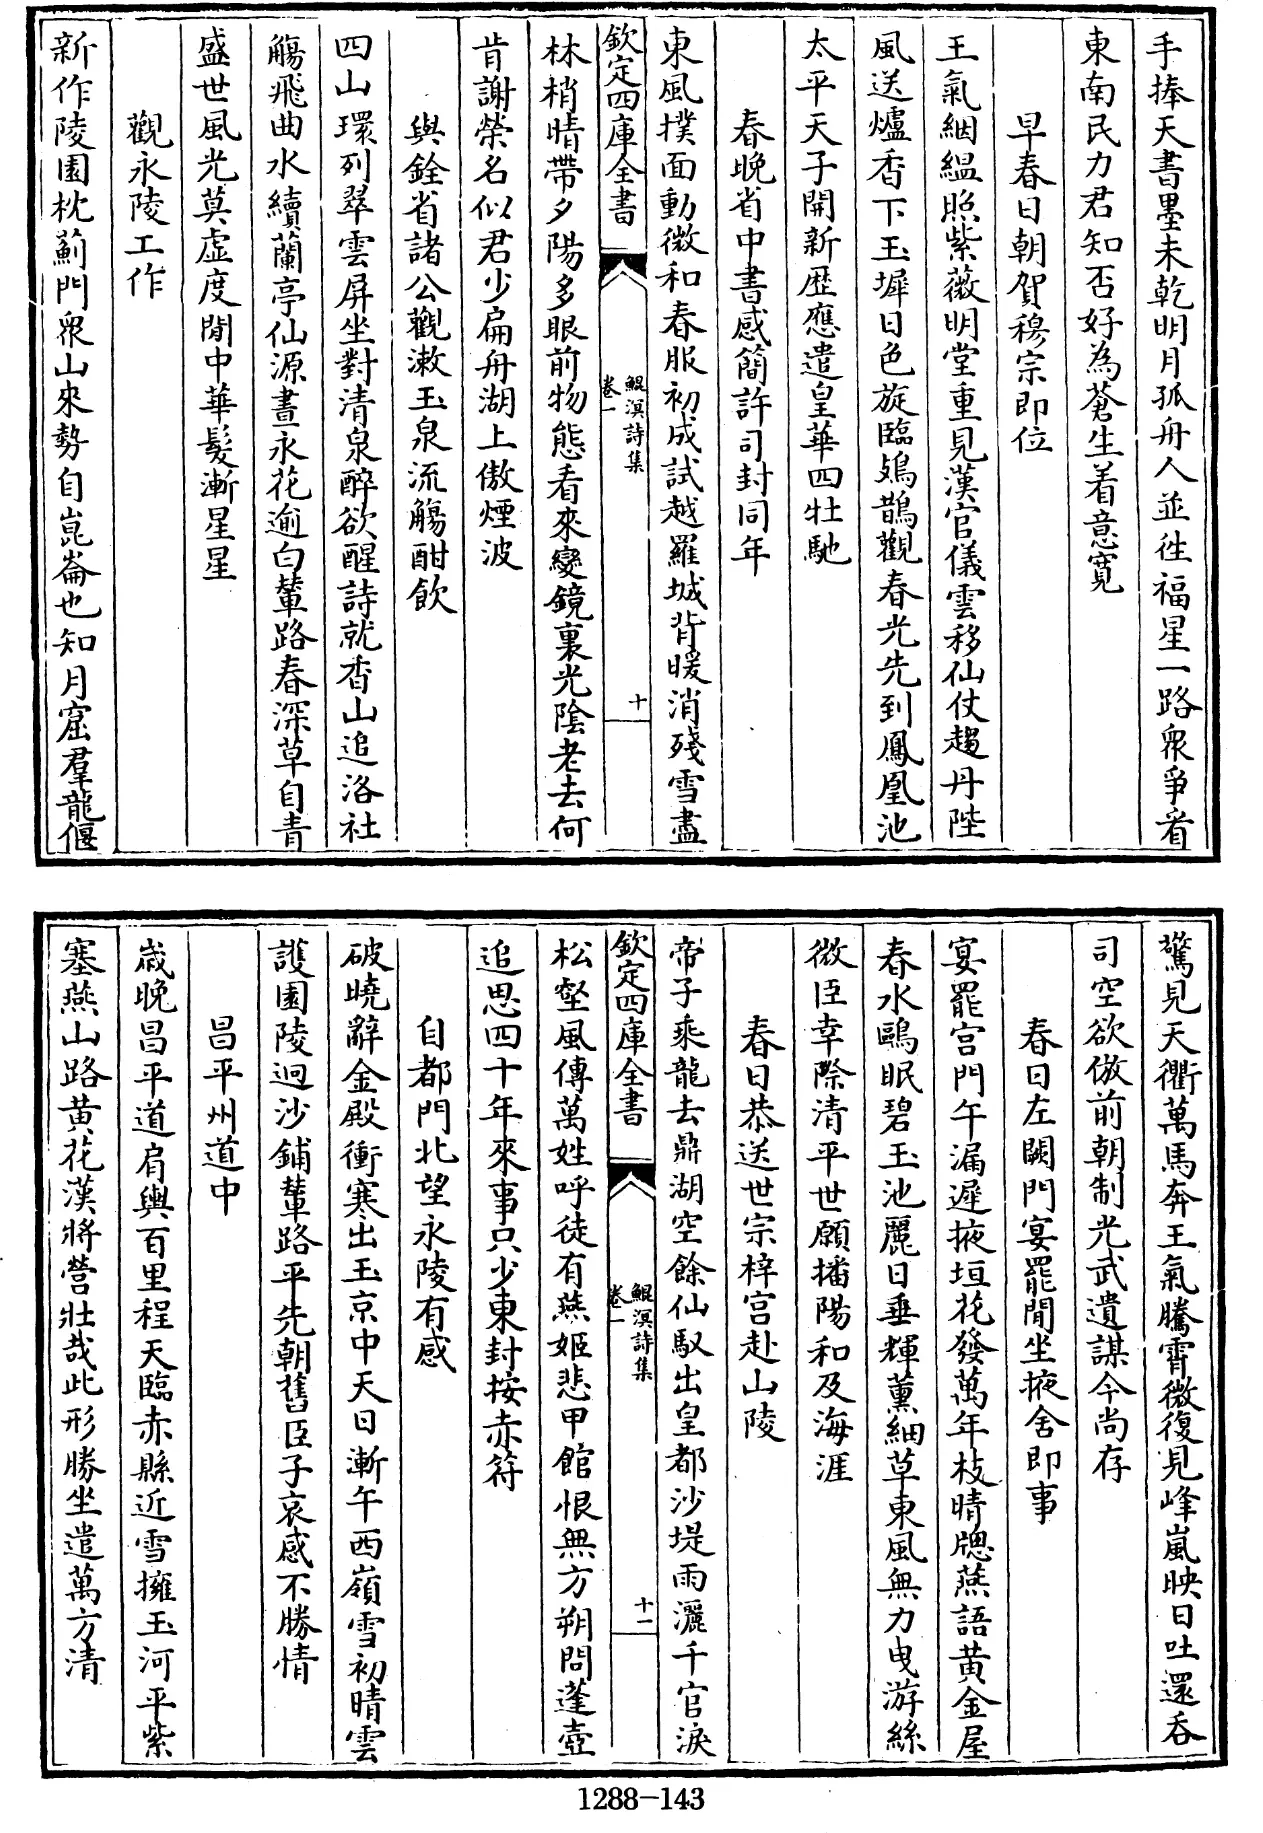 手捧天書墨未乾明月孤舟人並往福星一路衆爭看
東南民力君知否好為蒼生着意寛
早春日朝賀穆宗即位
王氣絪縕照紫薇明堂重見漢官儀雲移仙仗趨丹陛
風送爐香下玉墀日色旋臨鳷鵲觀春光先到鳳凰池
太平天子開新歴應遣皇華四牡馳
春晩省中書感簡許司封同年
東風撲面動微和春服初成試越羅城背暖消殘雪盡
欽定四庫全書
鯤溟詩集
卷一
十
林梢晴帶夕陽多眼前物態看來變鏡裏光陰老去何
肯謝榮名似君少扁舟湖上傲煙波
與銓省諸公觀漱玉泉流觴酣飲
四山環列翠雲屏坐對清泉醉欲醒詩就香山追洛社
觴飛曲水續蘭亭仙源晝永花逾白輦路春深草自青
盛世風光莫虛度閒中華髪漸星星
觀永陵工作
新作陵園枕薊門衆山來勢自崑崙也知月窟羣龍偃
驚見天衢萬馬奔王氣騰霄微復見峰嵐映日吐還吞
司空欲倣前朝制光武遺謀今尚存
春日左闕門宴罷閒坐掖舍即事
宴罷宫門午漏遲掖垣花發萬年枝晴牕燕語黄金屋
春水鷗眠碧玉池麗日垂輝薰細草東風無力曳游絲
微臣幸際清平世願播陽和及海涯
春日恭送世宗梓宫赴山陵
帝子乘龍去鼎湖空餘仙馭出皇都沙堤雨灑千官淚
欽定四庫全書
鯤溟詩集
卷一
十一
松壑風傳萬姓呼徒有燕姬悲甲館恨無方朔問蓬壺
追思四十年來事只少東封按赤符
自都門北望永陵有感
破曉辭金殿衝寒出玉京中天日漸午西嶺雪初晴雲
護園陵迥沙鋪輦路平先朝舊臣子哀感不勝情
昌平州道中
歳晩昌平道肩輿百里程天臨赤縣近雪擁玉河平紫
塞燕山路黄花漢將營壯哉此形勝坐遣萬方清
1288-143